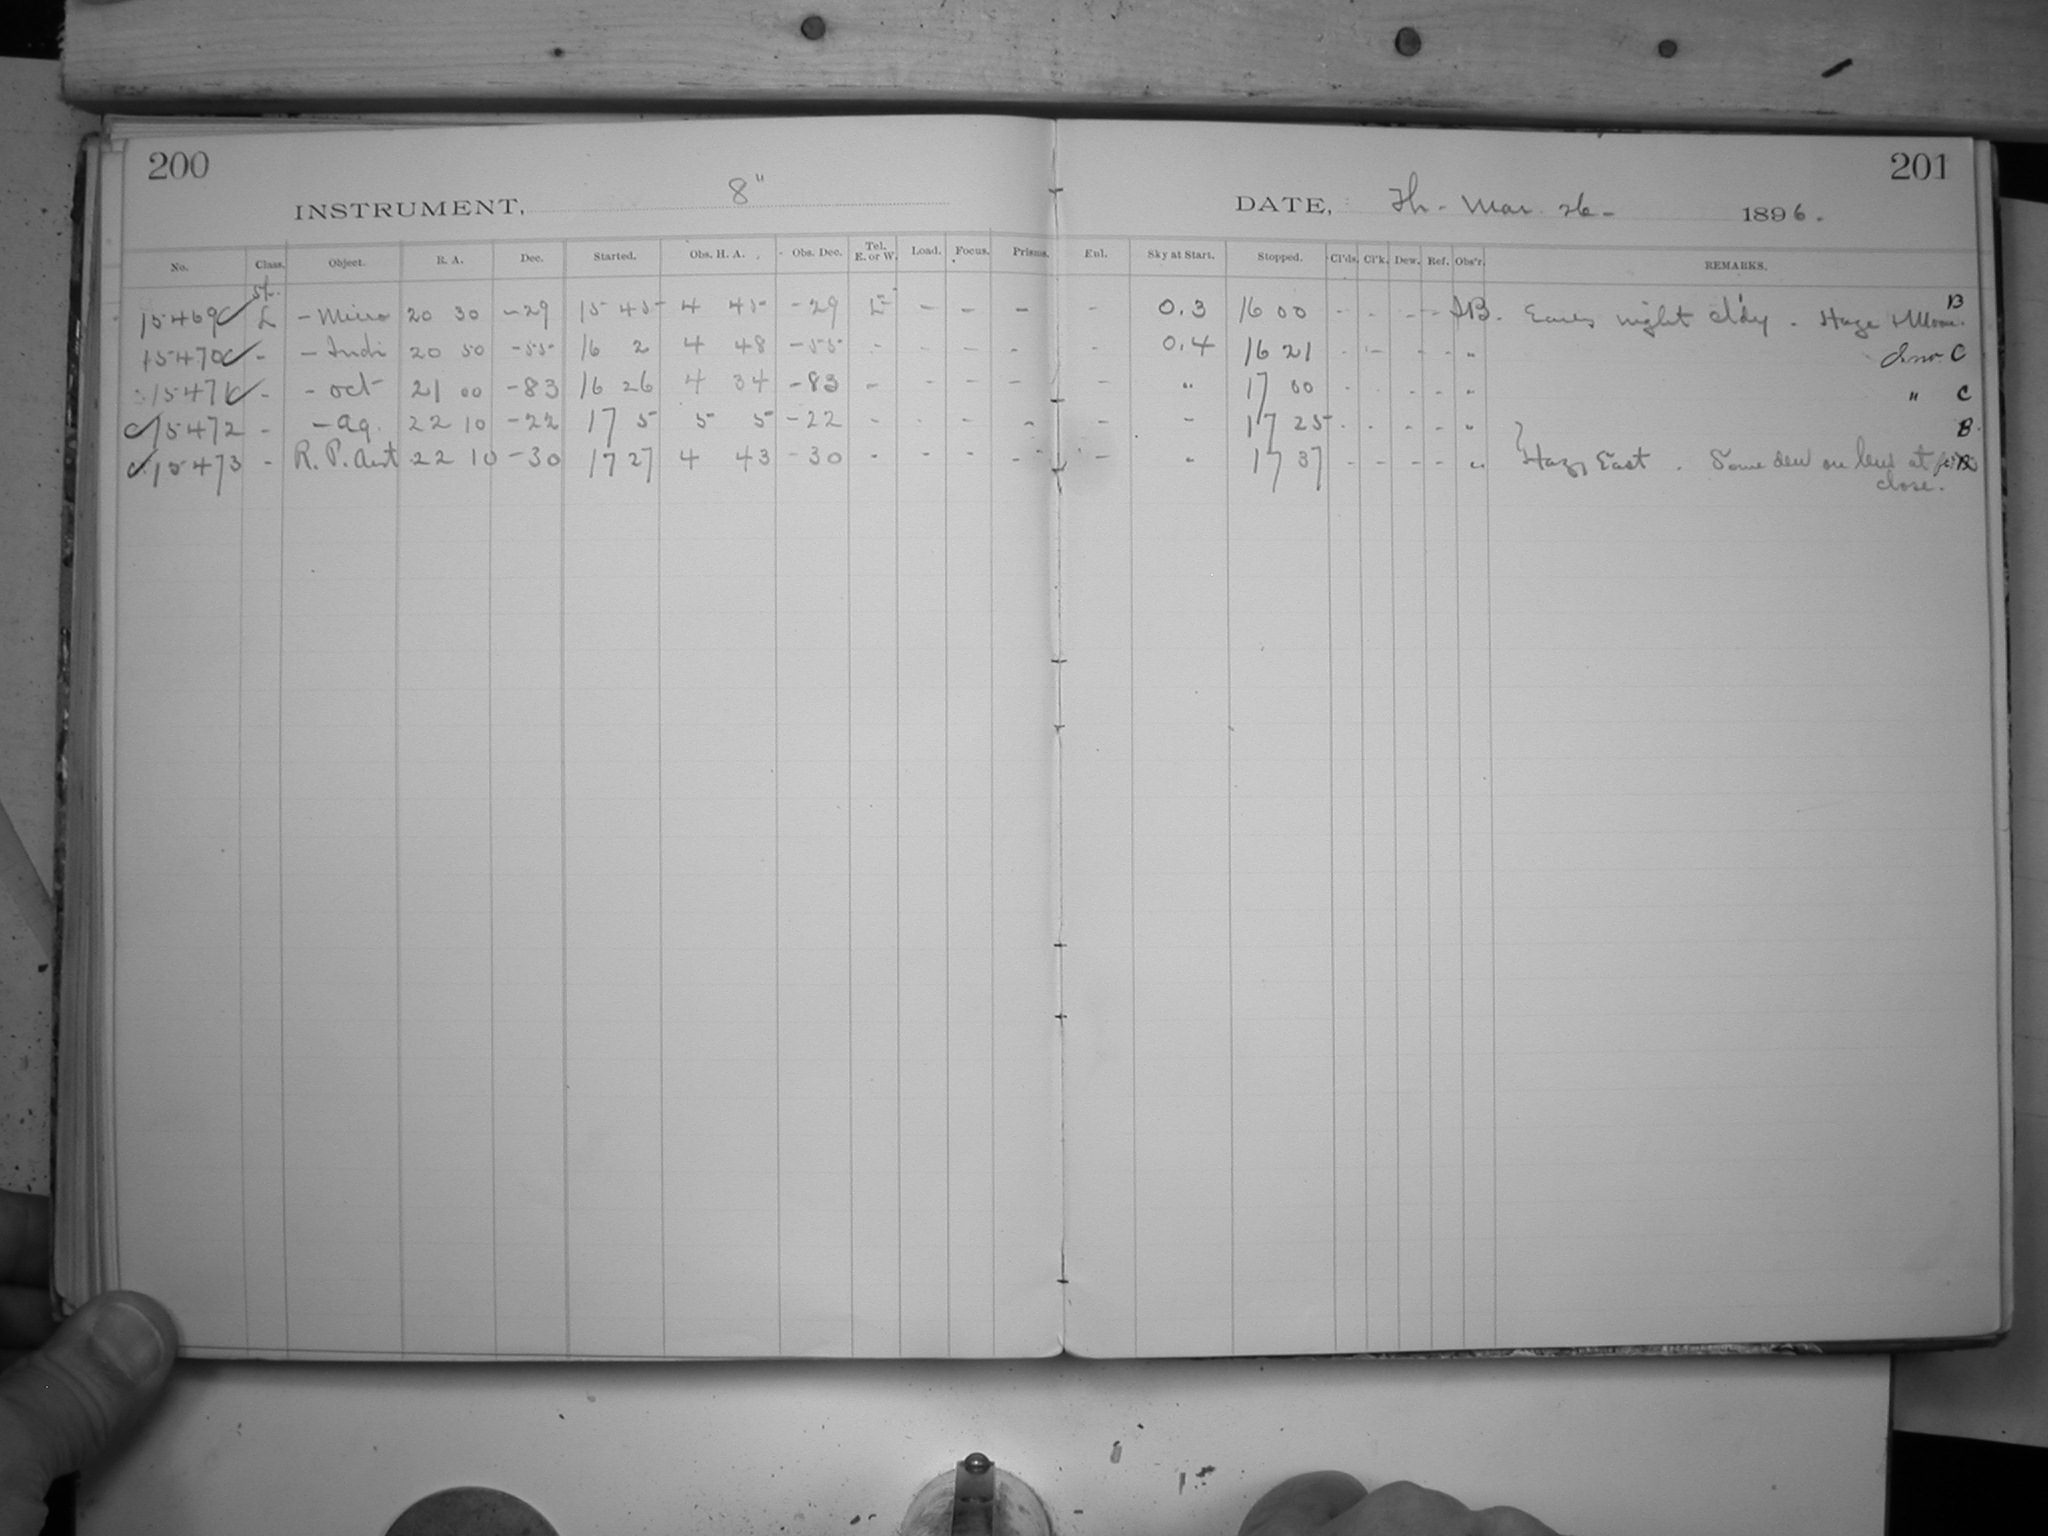 200
201
INSTRUMENT, 8"
DATE, Th. Mar. 26. 1896.
No. Class. Object. R. A. Dec. Started. Obs. H. A. Obs. Dec. Tel. E. or W. Load. Focus. Prisms. Eul. Sky at Start. Stopped. Cl'ds. Cl'k. Dew. Ref. Obs'r. REMARKS.
15469 L - Micro 20 30 -29 15 45 4 45 -29 E - - - - 0.3 16 00 - - - - B. night cl'dy. Haze & Moon. B
15470 - - Indi 20 50 -55 16 2 4 48 -55 - - - - - 0.4 16 21 - - - - " C
15471 - - Oct 21 00 -83 16 26 4 34 -83 - - - - - " 17 00 - - - - " " C
15472 - - Aq. 22 10 -22 17 5 5 5 -22 - - - - - " 17 25 - - - - " B.
15473 - R. P. Aust 22 10 -30 17 27 4 43 -30 - - - - - " 17 37 - - - - " Hazy East. Some dew on lens at
close.